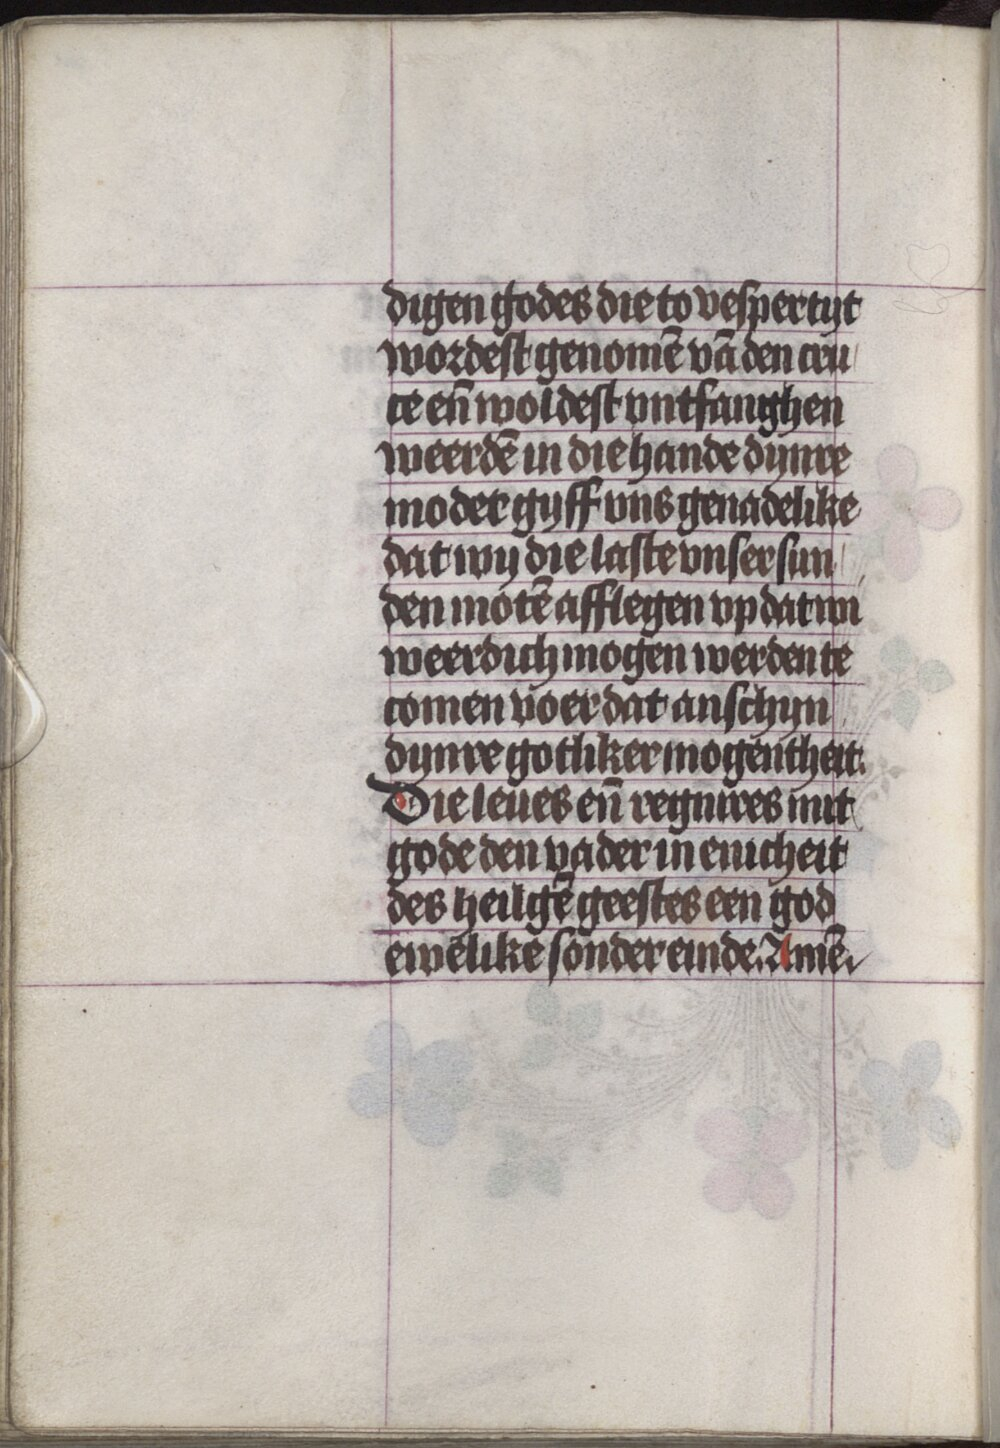 digen godes die to vespertijt
wordest genomē vā den cru
ce en̄ woldest vntfanghen
weerdē in die hande dijnre
moder gyff vns genadelike
dat wij die laste vnser sun
den motē afflegen vp dat wi
weerdich mogen werden te
comen voer dat anschijn
dijnre gotliker mogentheit.
Die leues en̄ regnires mit
gode den vader in enicheit
des heilgē geestes een god
ewelike sonder einde. Amē.